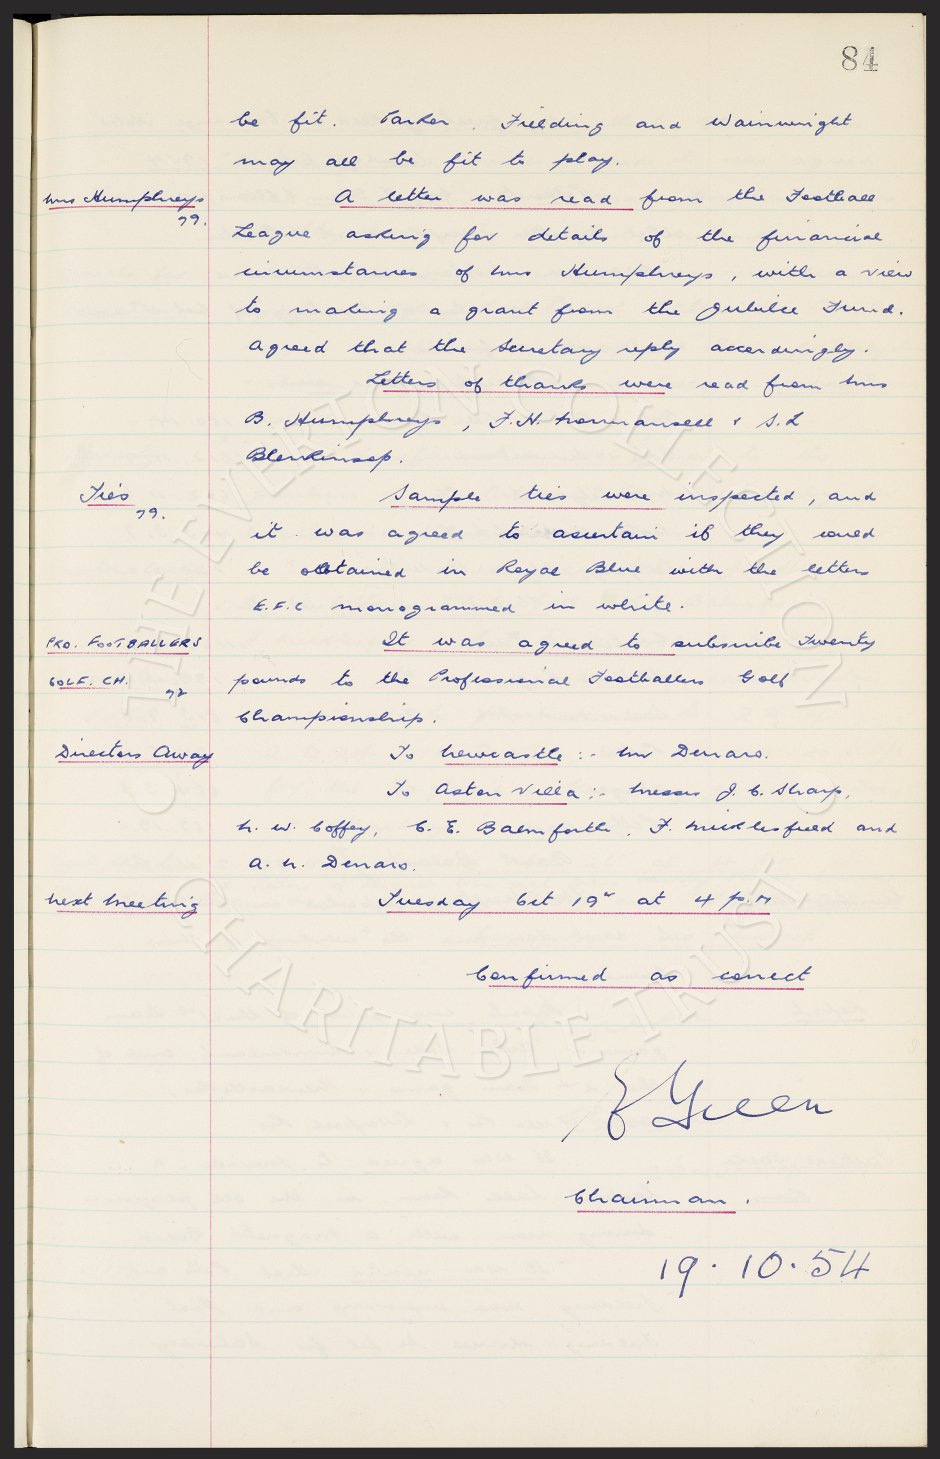 84
be fit. Parker, Fielding and Wainwright
may all be fit to play.
Mrs Humphreys A letter was read from the Football
79. League asking for details of the financial
circumstances of Mrs Humphreys, with a view
to making a grant from the Jubilee Fund.
Agreed that the Secretary reply accordingly.
Letters of thanks were read from Mrs
B. Humphreys, F.H. Normansell & S.L
Blenkinsop.
Ties Sample ties were inspected, and
79. it was agreed to ascertain if they could
be obtained in Royal Blue with the letters
E.F.C monogrammed in white.
PRO. FOOTBALLERS It was agreed to subscribe Twenty
GOLF. CH. 72 pounds to the Professional Footballers Golf
Championship.
Directors Away To Newcastle :- Mr Denaro.
To Aston Villa :- Messrs J. C. Sharp,
N. W. Coffey, C. E. Balmforth, F. Micklesfield and
A. N. Denaro.
Next Meeting Tuesday Oct 19th at 4 p.m
Confirmed as correct
E Green
Chairman.
19.10.54
THE EVERTON COLLECTION
CHARITABLE TRUST